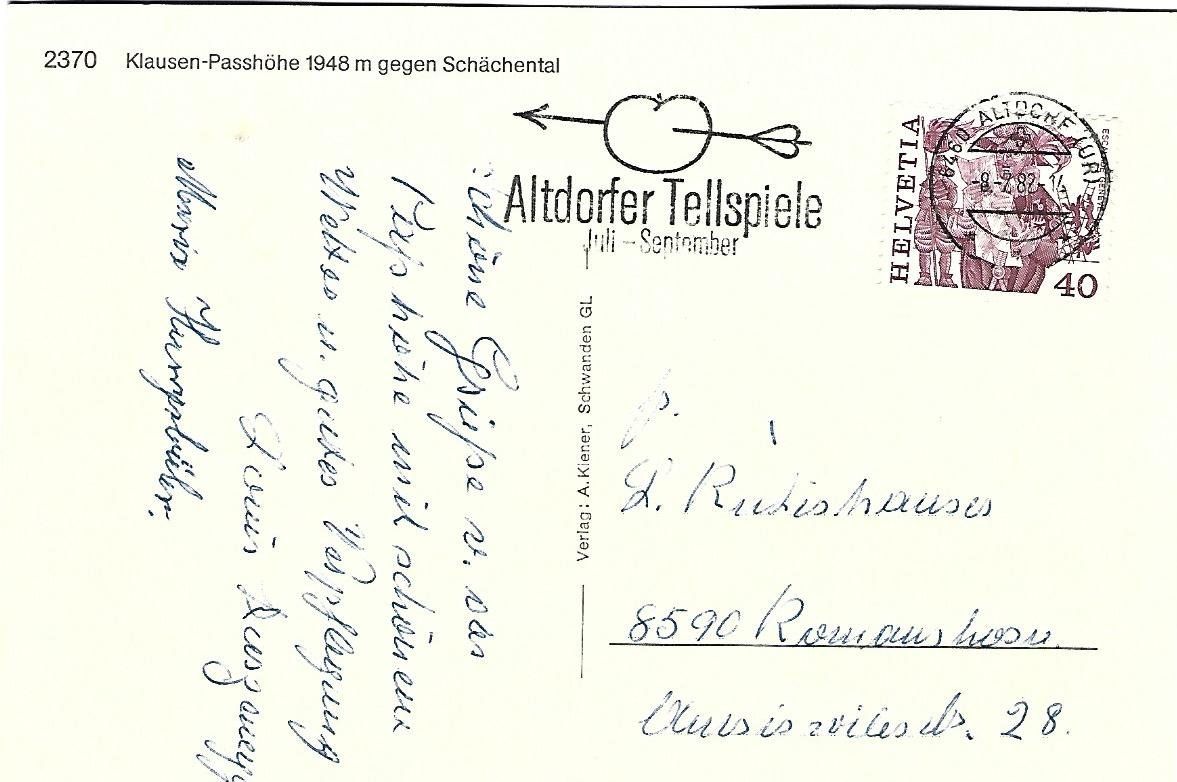 2370 Klausen-Passhöhe 1948 m gegen Schächental
Altdorfer Tellspiele
Juli – September
HELVETIA
40
6460 ALTDORF (UR)
-8.-7.82-14
Schöne Grüsse v. der
Passhöhe mit schönem
Wetter u. guter Verpflegung
Louis
Maria
Verlag: A. Kiener, Schwanden GL
L. Rutishauser
8590 Romanshorn
28.